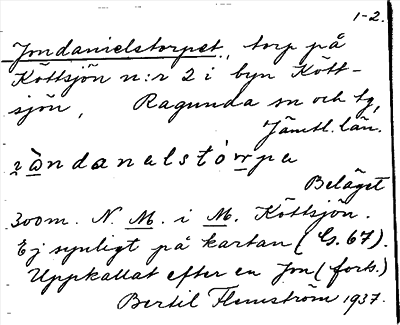 1-2.
Jondanielstorpet, torp på
Köttsjön n:r 2 i byn Kött-
sjön, Ragunda sn och tg,
Jämtl. län.
Beläget
300 m. N. M. i M. Köttsjön.
Ej synligt på kartan (G. 67).
Uppkallat efter en Jon (forts.)
Bertil Flemström 1937.